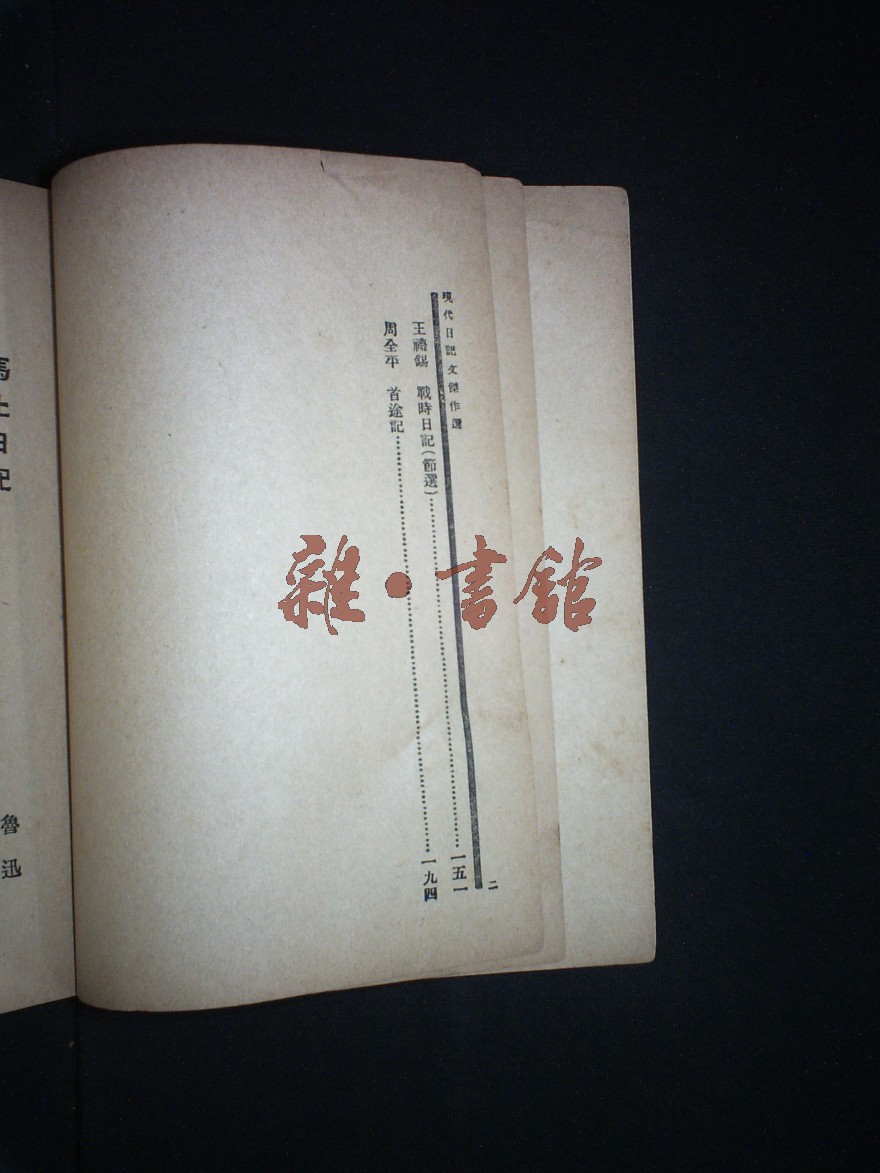 現代日記文傑作選
二
王禮錫 戰時日記(節選)……一五一
周全平 首途記……一九四
馬上日記
魯迅
雜•書館